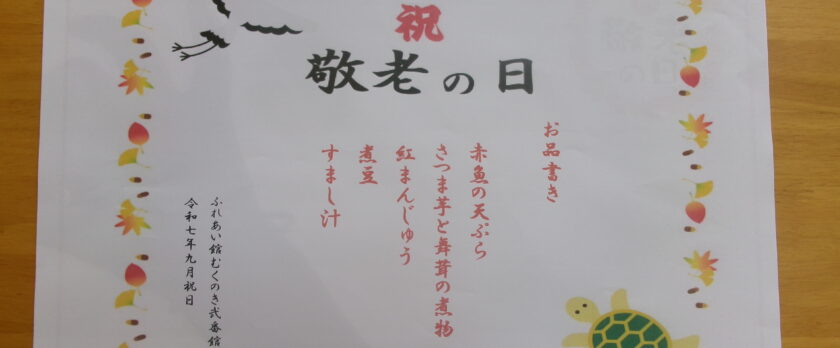 祝
敬老の日
お品書き
赤魚の天ぷら
さつま芋と舞茸の煮物
紅まんじゅう
煮豆
すまし汁
ふれあい館むくのき弐番館
令和七年九月祝日